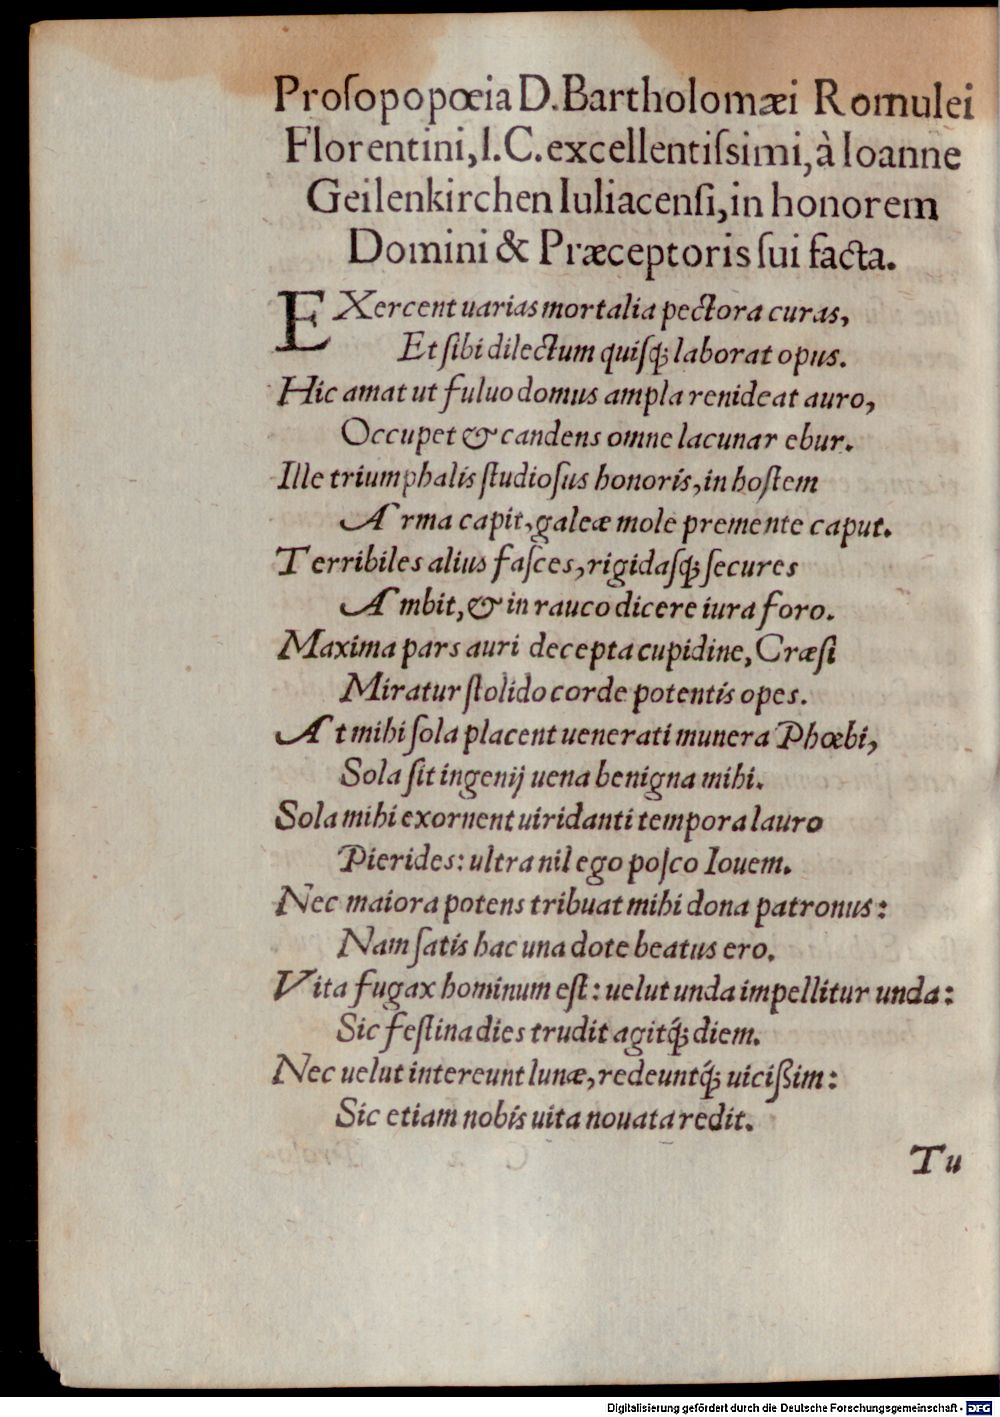 Proſopopœia D. Bartholomæi Romulei
Florentini, I. C. excellentiſsimi, à Ioanne
Geilenkirchen Iuliacenſi, in honorem
Domini & Præceptoris ſui facta.
EXercent uarias mortalia pectora curas,
Et ſibi dilectum quiſq; laborat opus.
Hic amat ut fuluo domus ampla renideat auro,
Occupet & candens omne lacunar ebur.
Ille triumphalis ſtudioſus honoris, in hoſtem
Arma capit, galeæ mole premente caput.
Terribiles alius faſces, rigidaſq; ſecures
Ambit, & in rauco dicere iura foro.
Maxima pars auri decepta cupidine, Cræſi
Miratur ſtolido corde potentis opes.
At mihi ſola placent uenerati munera Phœbi,
Sola ſit ingenij uena benigna mihi.
Sola mihi exornent uiridanti tempora lauro
Pierides: ultra nil ego poſco Iouem.
Nec maiora potens tribuat mihi dona patronus:
Nam ſatis hac una dote beatus ero.
Vita fugax hominum eſt: uelut unda impellitur unda:
Sic feſtina dies trudit agitq́; diem.
Nec uelut intereunt lunæ, redeuntq́; uicißim:
Sic etiam nobis uita nouata redit.
Tu
Digitalisierung gefördert durch die Deutsche Forschungsgemeinschaft - DFG